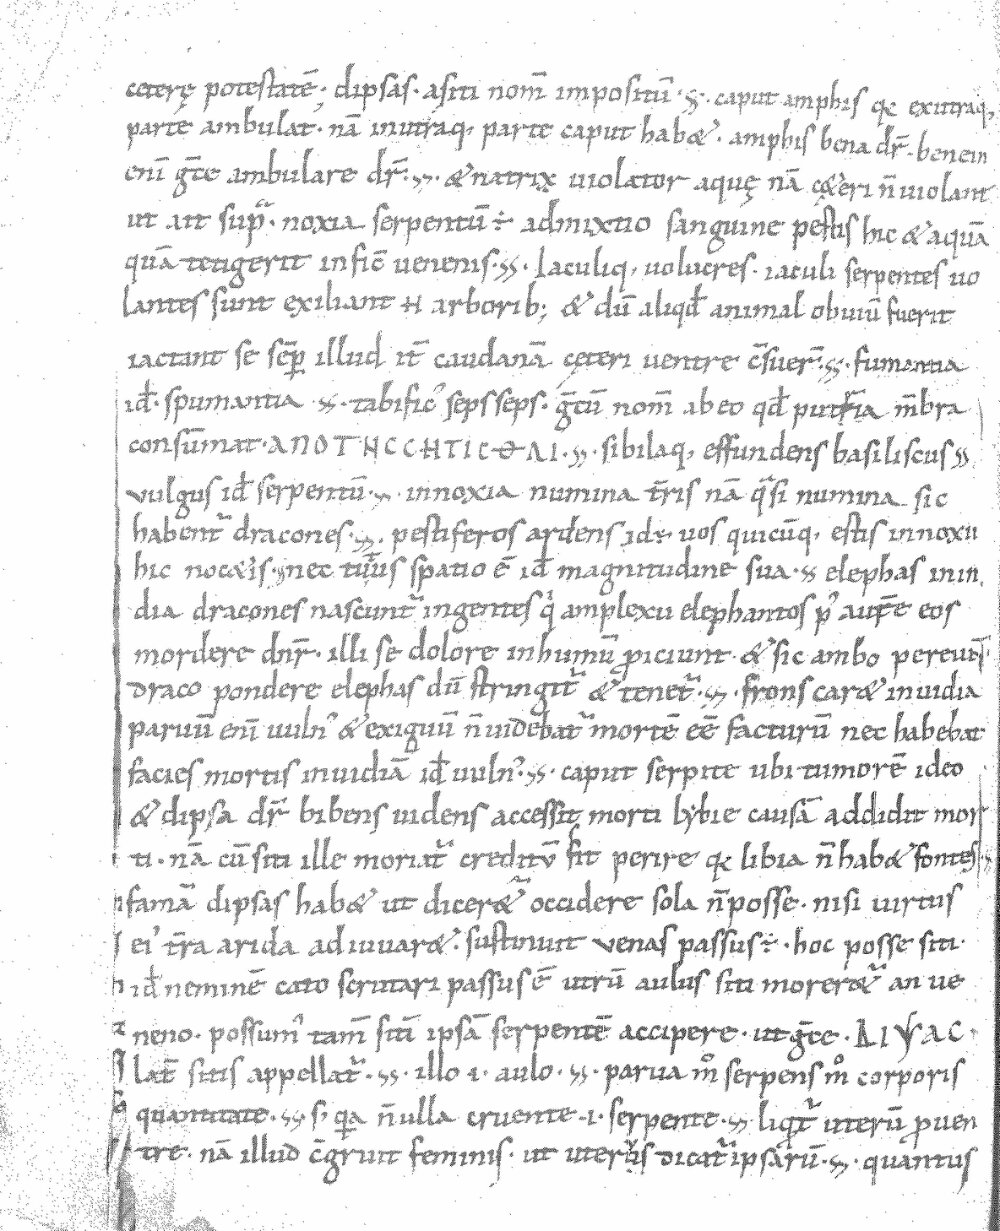 ceterę potestatē· dipsas· asiti nom̄ impositū ·§· caput amphis qꝫ exutraq,
parte ambulat· nā inutraq, parte caput habet· amphis bena dr̄· benein
enī gr̄ce ambulare dr̄·§· & natrix uiolator aquę nā cęteri n̄ uiolant
ut ait sup̄· noxia serpentū ÷ admixtio sanguine pestis hic & aquā
quā tetigerit inficē uenenis·§· Iaculiq, uolucres· iaculi serpentes uo
lantes sunt exiliant H arborib; & dū aliqđ animal obuiū fuerit
iactant se sep̄ illud it̄ caudanā cęteri uentre c̄suer̄·§· fumantia
iđ· spumantia ·§· tabific' seps seps· gr̄cū nom̄ ab eo qđ putria m̄bra
consūmat· ΑΠΟΤΗCCHTICΘΑΙ·§· sibilaq, effundens basiliscus §
vulgus iđ serpentū·§· innoxia numina t̄ris nā q̄si numina sic
habent̄ dracones·§· pestiferos ardens id÷ uos quicūq, estis innoxii
hic nocetis·§ nec tutus spatio ē iđ magnitudine sua·§ elephas in in
dia dracones nascunt̄ ingentes q' amplexu elephantos p' aure eos
mordere dn̄r· illi se dolore inhumū p̄iciunt· & sic ambo pereunt
draco pondere elephas dū stringit̄ & tenet̄·§· frons caret inuidia
paruū enī uuln' & exiguū n̄ uidebat̄ mortē eē facturū nec habebat
facies mortis inuidiā iđ uuln'·§· caput serpite ubi tumorē ideo
& dipsa dr̄ bibens uidens accessit morti lybie causā addidit mor
ti· nā cū siti ille moriat̄ creditū sit perire qꝫ libia n̄ habet fontes·
famā dipsas habet ut diceret̄ occidere sola n̄ posse· nisi uirtus
ei' t̄ra arida adiuuaret· sustinuit venas passus÷· hoc posse siti·
iđ neminē cato scrutari passus ē utrū aulus siti moreret̄ an ue
neno· possum' tam̄ sitī ipsā serpentē accipere· ut gr̄ce· ΔΙΨΑC·
lat̄ sitis appellat̄·§· illo ·i· aulo·§· parua m̊ serpens m̊ corporis
quantitate·§· s; q̄a n̄ ulla cruente ·i· serpente·§ liqt̄ uterū p̄uen
tre· nā illud c̄gruit feminis· ut uterus dicat̄ ipsarū·§· quantus